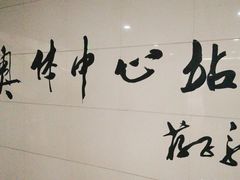 奥体中心站